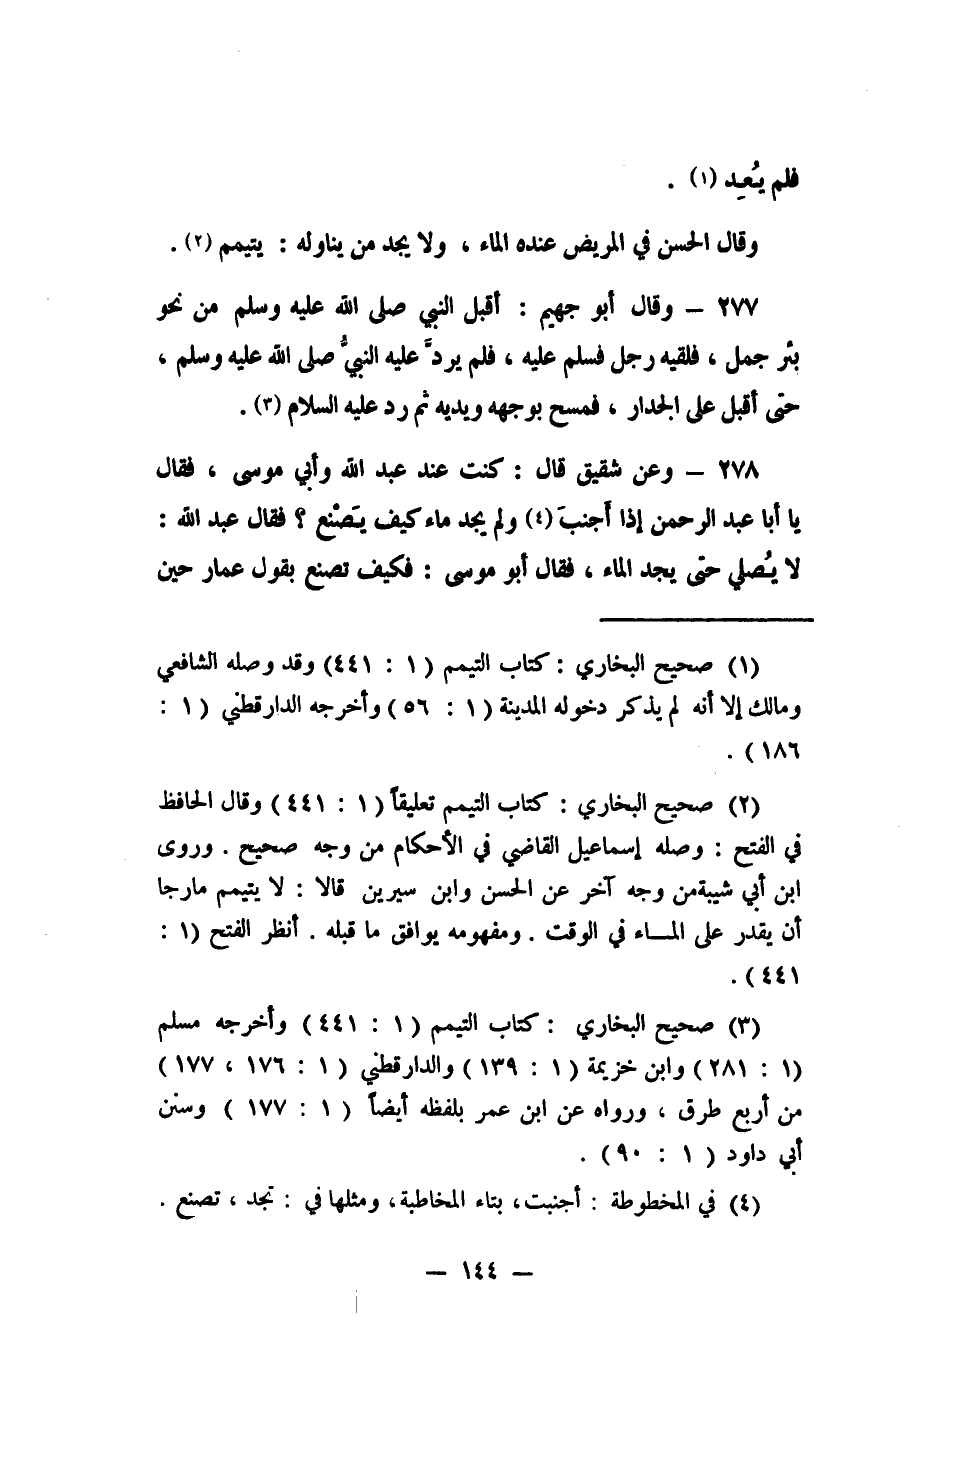 فلم يُعِد (١) .
وقال الحسن في المريض عنده الماء ، ولا يجد من يناوله : يتيمم (٢) .
٢٧٧ – وقال أبو جهيم : أقبل النبي صلى الله عليه وسلم من نحو
بئر جمل ، فلقيه رجل فسلم عليه ، فلم يردَّ عليه النبيُّ صلى الله عليه وسلم ،
حتى أقبل على الجدار ، فمسح بوجهه ويديه ثم رد عليه السلام (٣) .
٢٧٨ – وعن شقيق قال : كنت عند عبد الله وأبي موسى ، فقال
يا أبا عبد الرحمن إذا أَجنبَ (٤) ولم يجد ماء كيف يَصْنع ؟ فقال عبد الله :
لا يُصلي حتى يجد الماء ، فقال أبو موسى : فكيف تصنع بقول عمار حين
(١) صحيح البخاري : كتاب التيمم ( ١ : ٤٤١) وقد وصله الشافعي
ومالك إلا أنه لم يذكر دخوله المدينة ( ١ : ٥٦ ) وأخرجه الدارقطني ( ١ :
١٨٦ ) .
(٢) صحيح البخاري : كتاب التيمم تعليقاً ( ١ : ٤٤١ ) وقال الحافظ
في الفتح : وصله إسماعيل القاضي في الأحكام من وجه صحيح . وروى
ابن أبي شيبةمن وجه آخر عن الحسن وابن سيرين قالا : لا يتيمم مارجا
أن يقدر على المـــاء في الوقت . ومفهومه يوافق ما قبله . أنظر الفتح (١ :
٤٤١ ) .
(٣) صحيح البخاري : كتاب التيمم ( ١ : ٤٤١ ) وأخرجه مسلم
(١ : ٢٨١ ) وابن خزيمة ( ١ : ١٣٩ ) والدارقطني ( ١ : ١٧٦ ، ١٧٧ )
من أربع طرق ، ورواه عن ابن عمر بلفظه أيضاً ( ١ : ١٧٧ ) وسنن
أبي داود ( ١ : ٩٠ ) .
(٤) في المخطوطة : أجنبت، بتاء المخاطبة، ومثلها في : تجد ، تصنع .
– ١٤٤ –